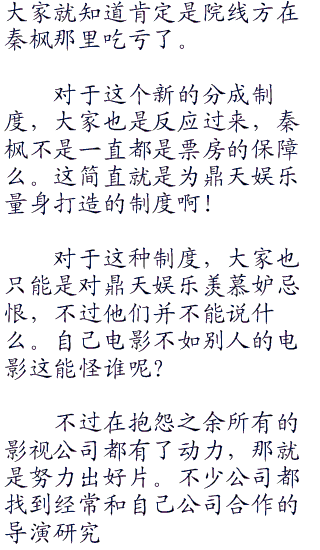 大家就知道肯定是院线方在
秦枫那里吃亏了。
对于这个新的分成制
度，大家也是反应过来，秦
枫不是一直都是票房的保障
么。这简直就是为鼎天娱乐
量身打造的制度啊！
对于这种制度，大家也
只能是对鼎天娱乐羡慕妒忌
恨，不过他们并不能说什
么。自己电影不如别人的电
影这能怪谁呢？
不过在抱怨之余所有的
影视公司都有了动力，那就
是努力出好片。不少公司都
找到经常和自己公司合作的
导演研究